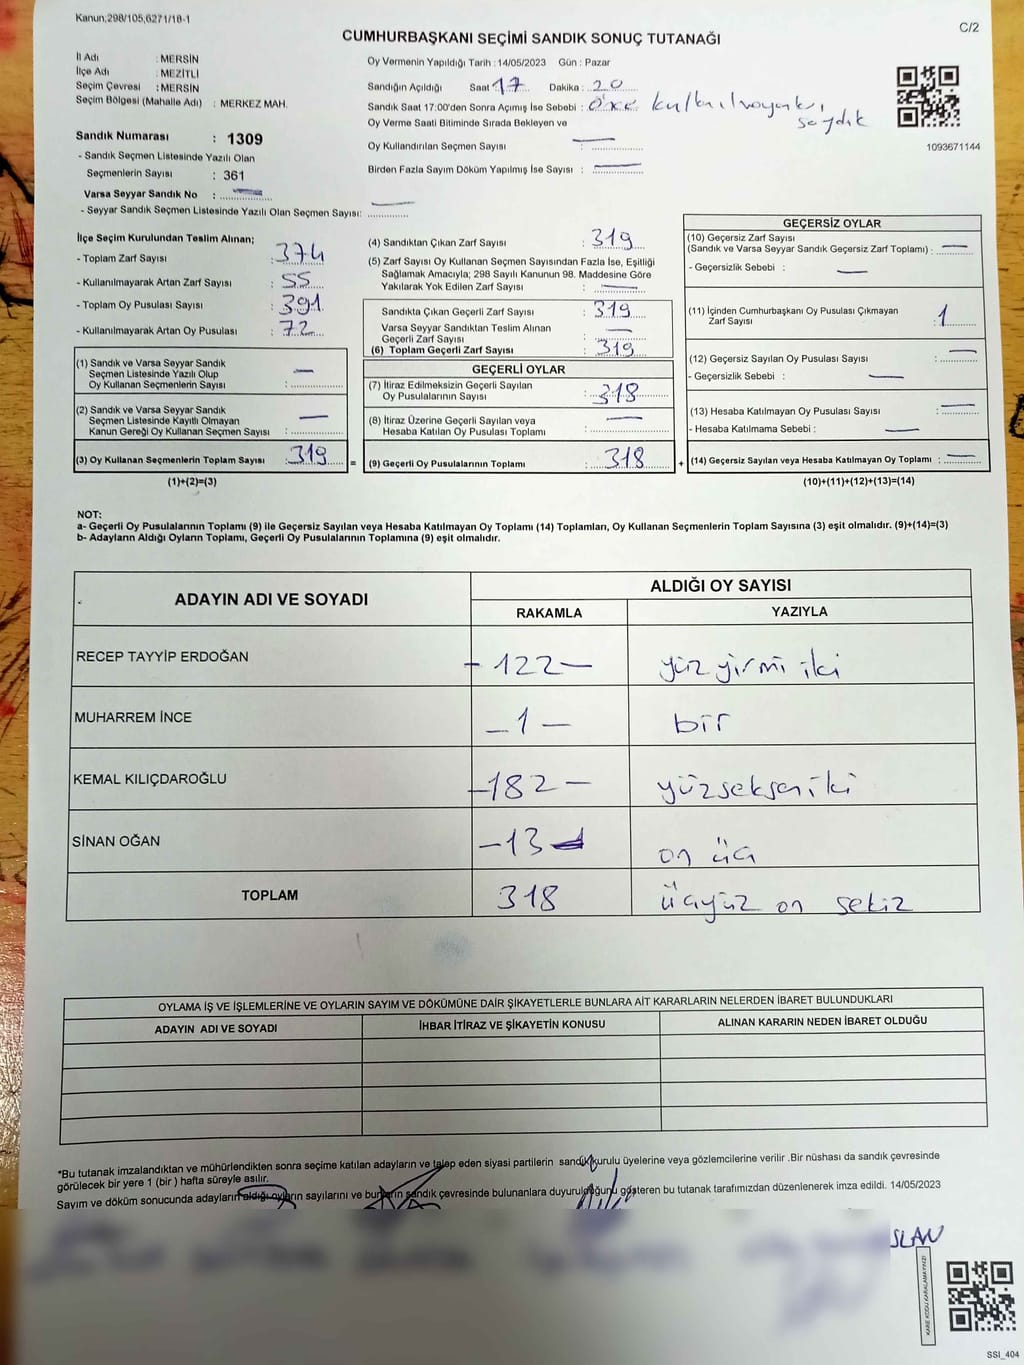 Kanun,298/105,6271/18-1
C/2
CUMHURBAŞKANI SEÇİMİ SANDIK SONUÇ TUTANAĞI
İl Adı : MERSİN
İlçe Adı : MEZİTLİ
Seçim Çevresi : MERSİN
Seçim Bölgesi (Mahalle Adı) : MERKEZ MAH.
Sandık Numarası : 1309
- Sandık Seçmen Listesinde Yazılı Olan
Seçmenlerin Sayısı : 361
Varsa Seyyar Sandık No : —
- Seyyar Sandık Seçmen Listesinde Yazılı Olan Seçmen Sayısı: —
Oy Vermenin Yapıldığı Tarih : 14/05/2023 Gün : Pazar
Sandığın Açıldığı Saat 17 Dakika : 20
Sandık Saat 17:00'den Sonra Açımış İse Sebebi : önce
saydık
Oy Verme Saati Bitiminde Sırada Bekleyen ve
Oy Kullandırılan Seçmen Sayısı : —
Birden Fazla Sayım Döküm Yapılmış İse Sayısı : —
1093671144
İlçe Seçim Kurulundan Teslim Alınan;
- Toplam Zarf Sayısı : 374
- Kullanılmayarak Artan Zarf Sayısı : 55
- Toplam Oy Pusulası Sayısı : 391
- Kullanılmayarak Artan Oy Pusulası : 72
(1) Sandık ve Varsa Seyyar Sandık
Seçmen Listesinde Yazılı Olup
Oy Kullanan Seçmenlerin Sayısı : —
(2) Sandık ve Varsa Seyyar Sandık
Seçmen Listesinde Kayıtlı Olmayan
Kanun Gereği Oy Kullanan Seçmen Sayısı : —
(3) Oy Kullanan Seçmenlerin Toplam Sayısı : 319 =
(1)+(2)=(3)
(4) Sandıktan Çıkan Zarf Sayısı : 319
(5) Zarf Sayısı Oy Kullanan Seçmen Sayısından Fazla İse, Eşitliği
Sağlamak Amacıyla; 298 Sayılı Kanunun 98. Maddesine Göre
Yakılarak Yok Edilen Zarf Sayısı : —
Sandıkta Çıkan Geçerli Zarf Sayısı : 319
Varsa Seyyar Sandıktan Teslim Alınan
Geçerli Zarf Sayısı : —
(6) Toplam Geçerli Zarf Sayısı : 319
GEÇERLİ OYLAR
(7) İtiraz Edilmeksizin Geçerli Sayılan
Oy Pusulalarının Sayısı : 318
(8) İtiraz Üzerine Geçerli Sayılan veya
Hesaba Katılan Oy Pusulası Toplamı : —
(9) Geçerli Oy Pusulalarının Toplamı : 318 +
GEÇERSİZ OYLAR
(10) Geçersiz Zarf Sayısı
(Sandık ve Varsa Seyyar Sandık Geçersiz Zarf Toplamı) : —
- Geçersizlik Sebebi : —
(11) İçinden Cumhurbaşkanı Oy Pusulası Çıkmayan
Zarf Sayısı : 1
(12) Geçersiz Sayılan Oy Pusulası Sayısı : —
- Geçersizlik Sebebi : —
(13) Hesaba Katılmayan Oy Pusulası Sayısı : —
- Hesaba Katılmama Sebebi : —
(14) Geçersiz Sayılan veya Hesaba Katılmayan Oy Toplamı : —
(10)+(11)+(12)+(13)=(14)
NOT:
a- Geçerli Oy Pusulalarının Toplamı (9) ile Geçersiz Sayılan veya Hesaba Katılmayan Oy Toplamı (14) Toplamları, Oy Kullanan Seçmenlerin Toplam Sayısına (3) eşit olmalıdır. (9)+(14)=(3)
b- Adayların Aldığı Oyların Toplamı, Geçerli Oy Pusulalarının Toplamına (9) eşit olmalıdır.
ADAYIN ADI VE SOYADI ALDIĞI OY SAYISI
RAKAMLA YAZIYLA
RECEP TAYYİP ERDOĞAN - 122 - yüz yirmi iki
MUHARREM İNCE - 1 - bir
KEMAL KILIÇDAROĞLU - 182 - yüzseksen iki
SİNAN OĞAN - 13 - on üç
TOPLAM 318 üçyüz on sekiz
OYLAMA İŞ VE İŞLEMLERİNE VE OYLARIN SAYIM VE DÖKÜMÜNE DAİR ŞİKAYETLERLE BUNLARA AİT KARARLARIN NELERDEN İBARET BULUNDUKLARI
ADAYIN ADI VE SOYADI İHBAR İTİRAZ VE ŞİKAYETİN KONUSU ALINAN KARARIN NEDEN İBARET OLDUĞU
*Bu tutanak imzalandıktan ve mühürlendikten sonra seçime katılan adayların ve talep eden siyasi partilerin sandık kurulu üyelerine veya gözlemcilerine verilir .Bir nüshası da sandık çevresinde
görülecek bir yere 1 (bir ) hafta süreyle asılır.
Sayım ve döküm sonucunda adayların aldığı oyların sayılarını ve bunların sandık çevresinde bulunanlara duyurulduğunu gösteren bu tutanak tarafımızdan düzenlenerek imza edildi. 14/05/2023
SLAN
SSI_404